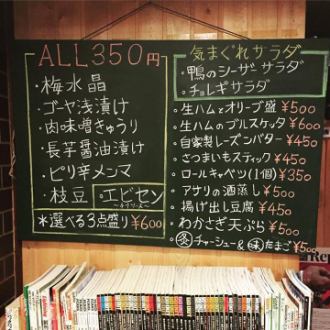 ALL350円
・梅水晶
・ゴーヤ浅漬け
・肉味噌きゅうり
・長芋醤油漬け
・ピリ辛メンマ
・枝豆
・エビセン
*選べる3点盛り¥600
気まぐれサラダ
・鴨のシーザーサラダ
・チョレギサラダ
・生ハムとオリーブ盛 ¥500
・生ハムのブルスケッタ ¥600
・自家製レーズンバター ¥450
・さつまいもスティック ¥450
・ロールキャベツ(1個) ¥350
・アサリの酒蒸し ¥500
・揚げ出し豆腐 ¥450
・わかさぎ天ぷら ¥500
チャーシュー&味たまご ¥500